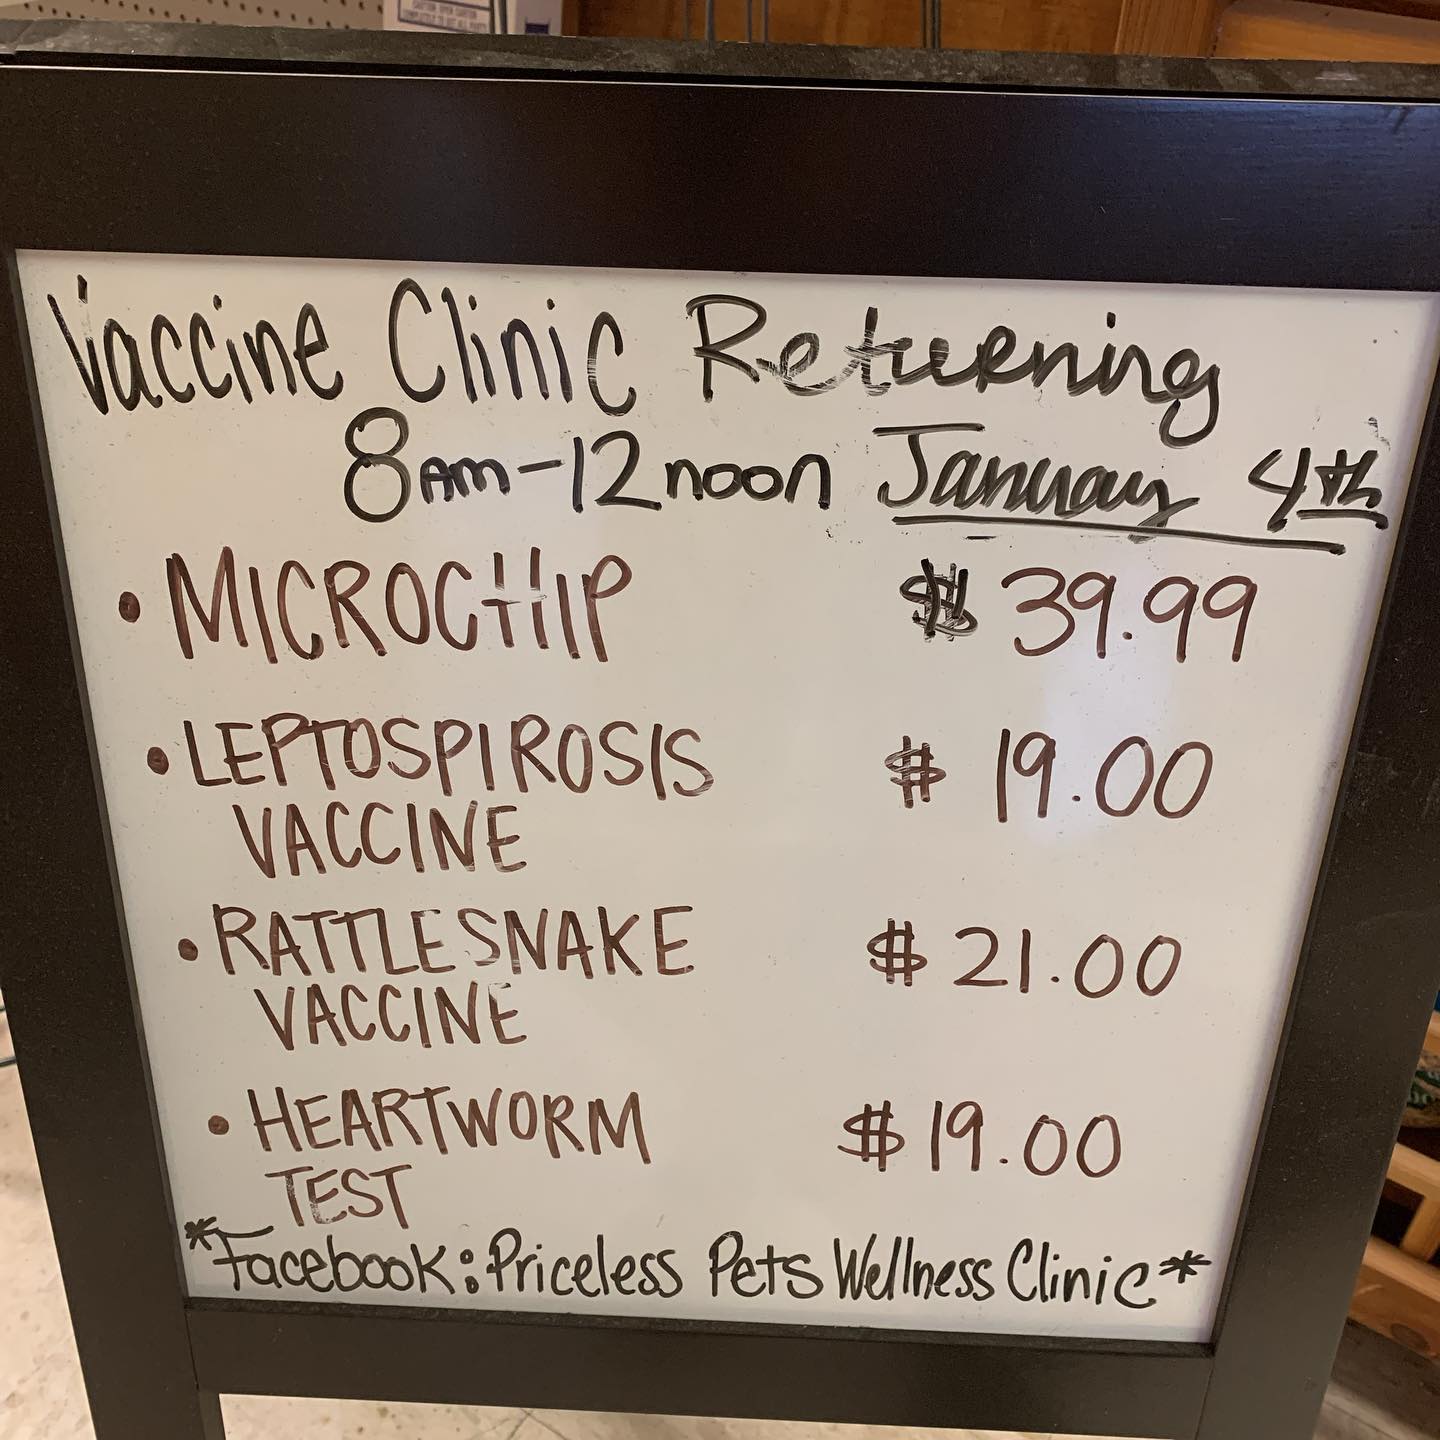 Vaccine Clinic Returning
8AM-12 noon January 4th
• MICROCHIP $39.99
• LEPTOSPIROSIS $19.00
VACCINE
• RATTLESNAKE $21.00
VACCINE
• HEARTWORM $19.00
TEST
*Facebook: Priceless Pets Wellness Clinic*